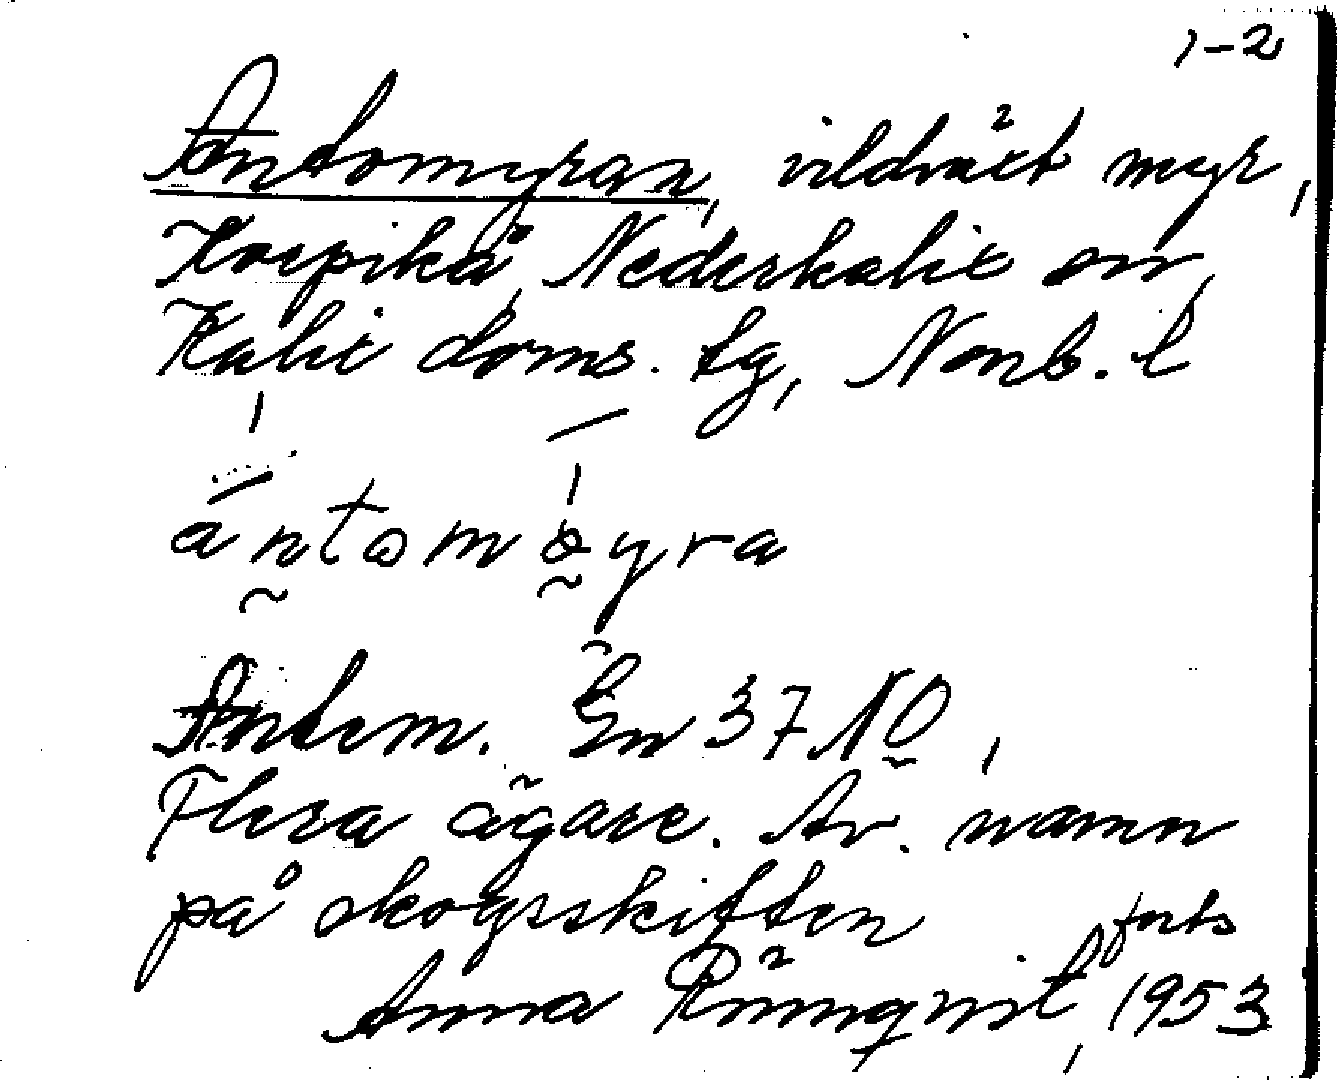 1-2
Antomyran, vildväxt myr,
Korpikå, Nederkalix sn,
Kalix doms. tg, Norrb. l
ántomøyra
Antom. En 37 NO,
Flera ägare. Äv. namn
på skogsskiften forts
Anna Rönnqvist, 1953